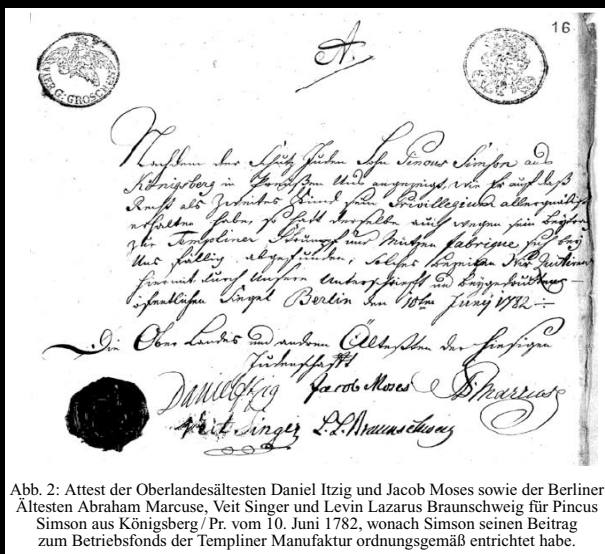 16
A.
VIER G. GROSCHEN
Nachdem der Schutz Juden Sohn Pincus Simson aus
Königsberg in Preußen Uns angezeigt, wie Er auf daß
Recht als Zweites Kind zum Privillegium allergnädigst
erhalten habe, so hatt derselbe auch wegen sein Beytrag
zur Templiner Strumpf und Mützen fabrique sich bey
Uns fällig abgefunden, Solches
hiermit durch Unsere Unterschrifft und beygedruckten
öfentlichen Siegel Berlin den 10ten Junÿ 1782
Die Ober Landes und andern Ältesten der hiesigen
Judenschafft
Daniel Itzig Jacob Moses
Veit Singer L. L. Braunschweig
Abb. 2: Attest der Oberlandesältesten Daniel Itzig und Jacob Moses sowie der Berliner
Ältesten Abraham Marcuse, Veit Singer und Levin Lazarus Braunschweig für Pincus
Simson aus Königsberg / Pr. vom 10. Juni 1782, wonach Simson seinen Beitrag
zum Betriebsfonds der Templiner Manufaktur ordnungsgemäß entrichtet habe.